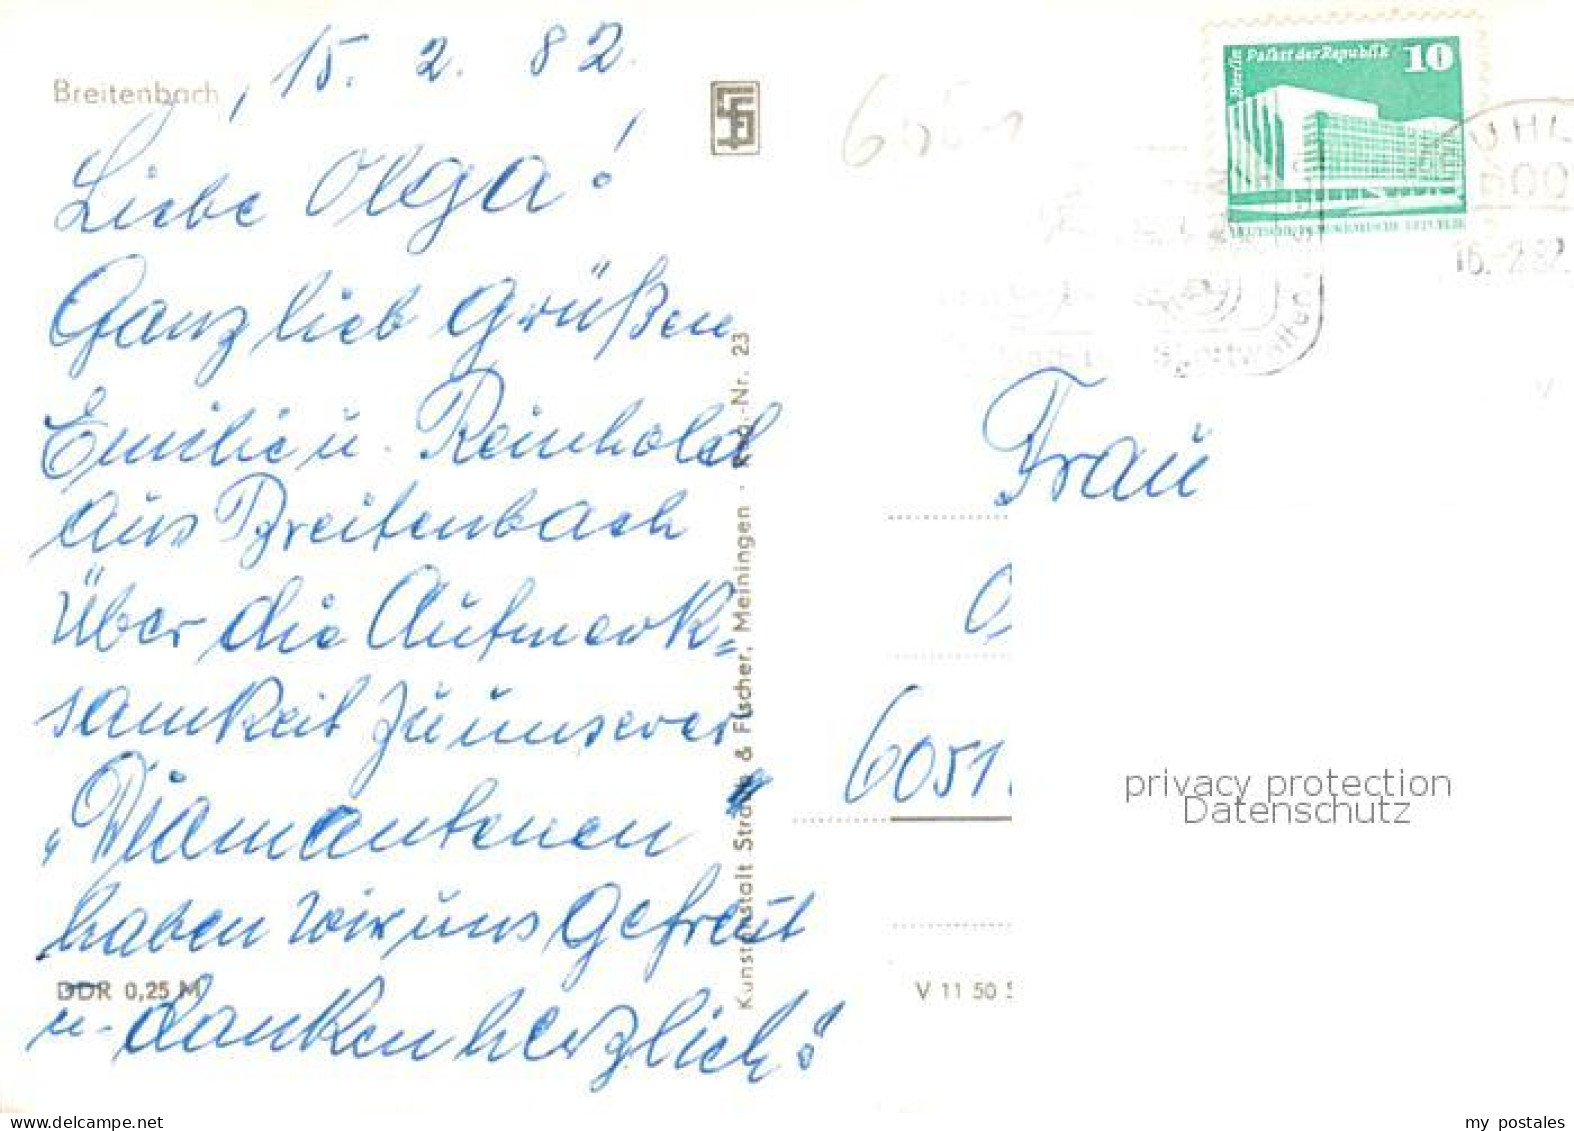 Breitenbach, 15. 2. 82.
Liebe Olga!
Ganz lieb Grüßen
Emilie u. Reinhold
aus Breitenbach
Über die Aufmerk=
samkeit zu unserer
„Diamantenen"
haben wir uns gefreut
u. danken herzlich!
DDR 0,25 M
Kunstanstalt Straub & Fischer, Meiningen · Reg.-Nr. 23
Berlin Palast der Republik 10
DEUTSCHE DEMOKRATISCHE REPUBLIK
UHL
16.-2.82.
Frau
6051
V 11 50
privacy protection
Datenschutz
my postales